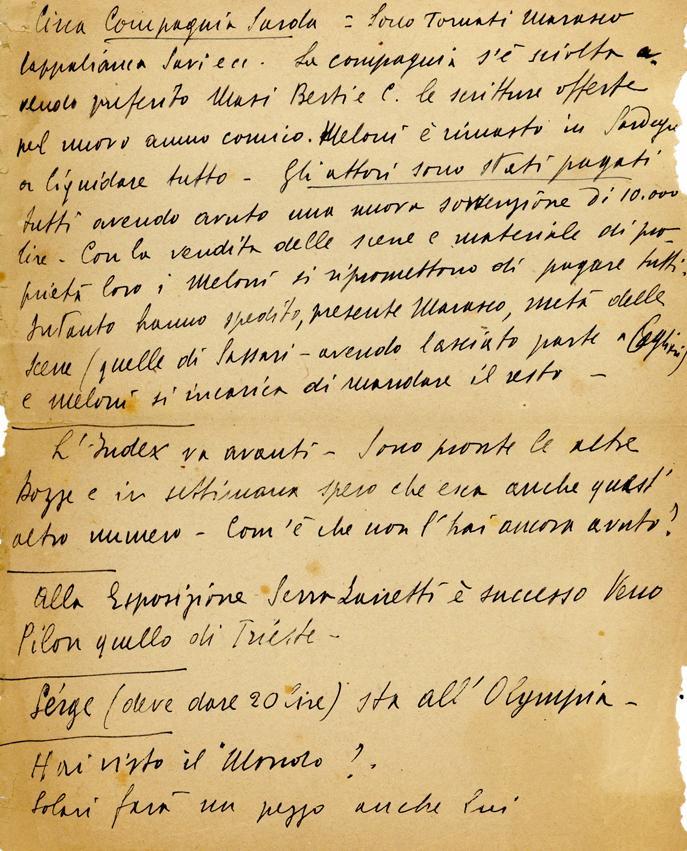 Circa Compagnia Sarda = Sono Tornati Marasco
Cappabianca Savi ecc. La compagnia s'è sciolta a-
vendo preferito Masi Berti e C. le scritture offerte
pel nuovo anno comico. Meloni è rimasto in Sardegna
a liquidare tutto - Gli attori sono stati pagati
tutti avendo avuto una nuova sovvenzione di 10.000
lire - Con la vendita delle scene e materiale di pro-
prietà loro i Meloni si ripromettono di pagare tutti.
Intanto hanno spedito, presente Marasco, metà delle
scene (quelle di Sassari - avendo lasciato parte a Cagliari)
e Meloni si incarica di mandare il resto -
L'Index va avanti - Sono pronte le altre
Bozze e in settimana spero che esca anche quest'
altro numero - Com'è che non l'hai ancora avuto?
Alla Esposizione Serra è successo Veno
Pilon quello di Trieste -
Sérge (deve dare 20 lire) sta all'Olympia -
Hai visto il "Mondo?.
Solari farà un pezzo anche Lui